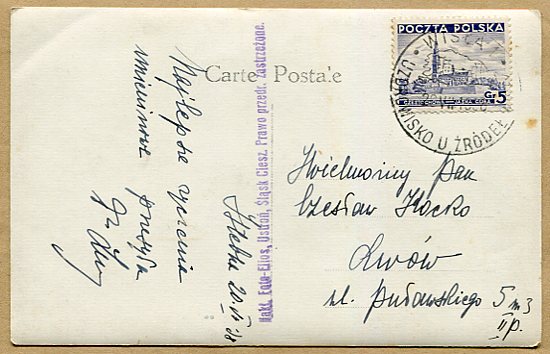 POCZTA POLSKA
Gr. 5
WISŁA
UZDROWISKO U ŹRÓDEŁ
Carte Postale
Nakł. Foto-Elios, Ustroń, Śląsk Ciesz. Prawo przedr. zastrzeżone.
Najlepsze życzenia
imieninowe przesyła
Istebna 20. VII 38
Wielmożny Pan
Czesław Kocko
Lwów
ul. Puławskiego 5 m 3
II p.